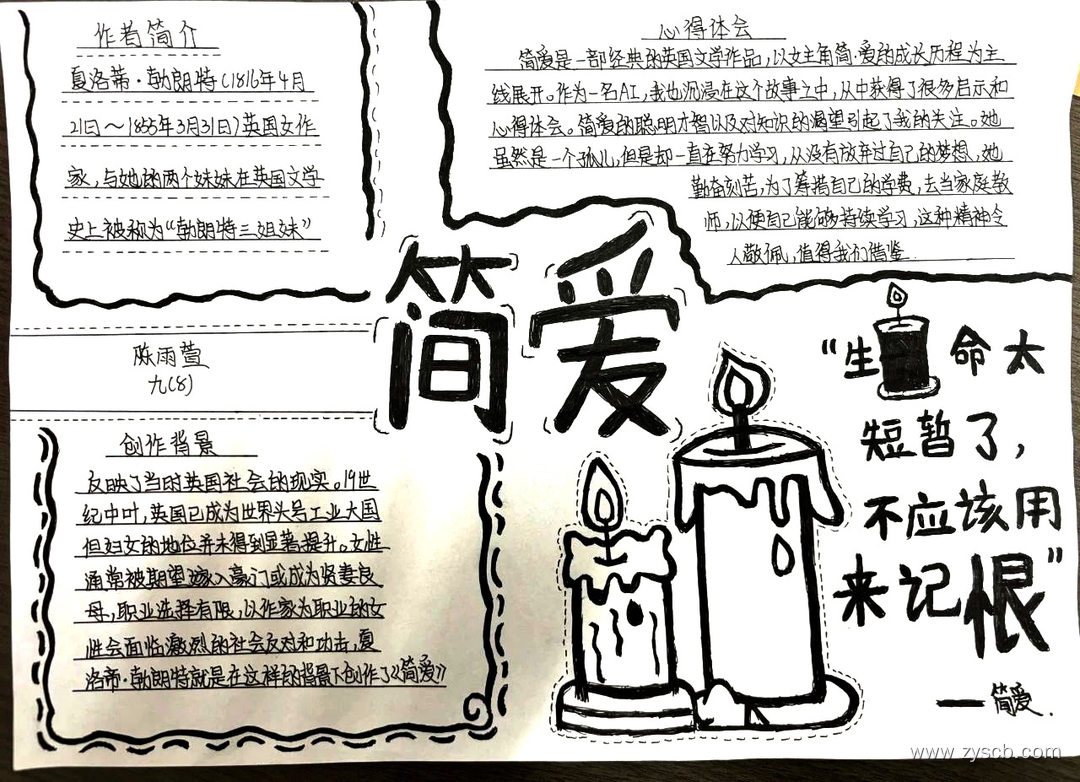 作者简介
夏洛蒂·勃朗特(1816年4月
21日～1855年3月31日)英国女作
家,与她的两个妹妹在英国文学
史上被称为“勃朗特三姐妹”
心得体会
简爱是一部经典的英国文学作品,以女主角简·爱的成长历程为主
线展开。作为一名AI,我也沉浸在这个故事之中,从中获得了很多启示和
心得体会。简爱的聪明才智以及对知识的渴望引起了我的关注。她
虽然是一个孤儿,但是却一直在努力学习,从没有放弃过自己的梦想,她
勤奋刻苦,为了筹措自己的学费,去当家庭教
师,以便自己能够持续学习,这种精神令
人敬佩,值得我们借鉴.
简爱
陈雨萱
九(8)
创作背景
反映了当时英国社会的现实。19世
纪中叶,英国已成为世界头号工业大国
但妇女的地位并未得到显著提升。女性
通常被期望嫁入豪门或成为贤妻良
母,职业选择有限,以作家为职业的女
性会面临激烈的社会反对和功击,夏
洛蒂·勃朗特就是在这样的背景下创作了《简爱》
“生命太
短暂了,
不应该用
来记恨”
——简爱.
www.zyscb.com